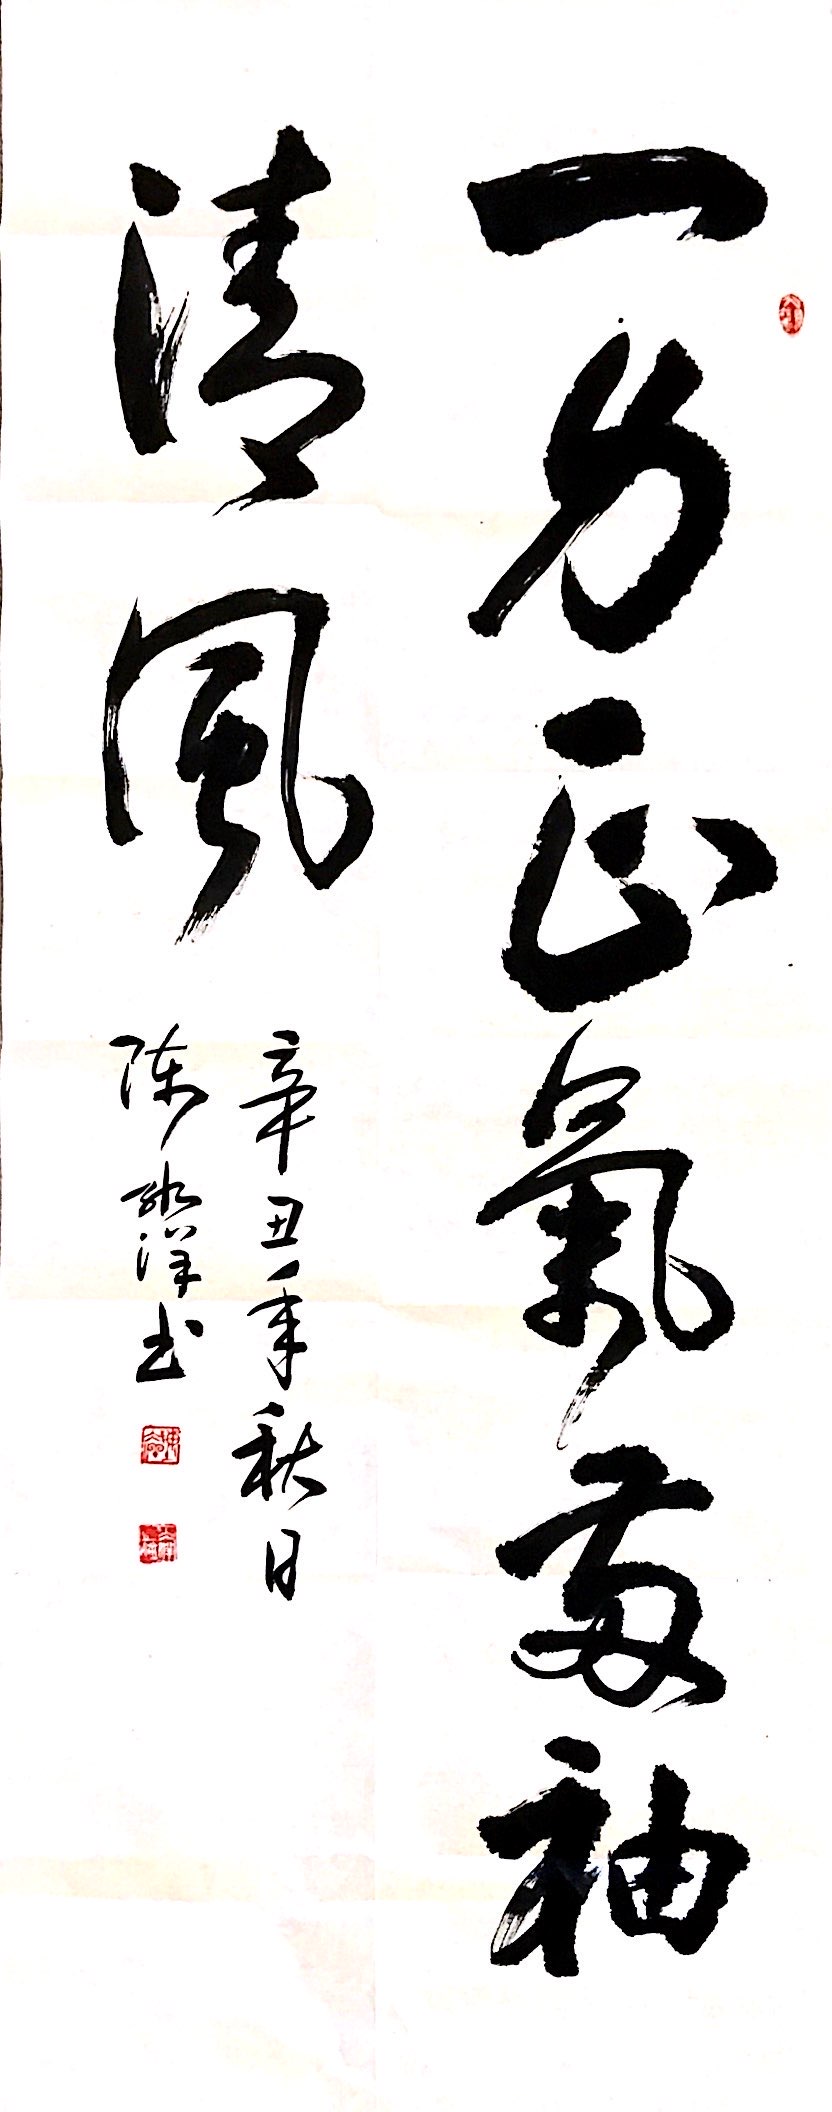 一身正氣兩袖
清風
辛丑年秋日
陈
洋书